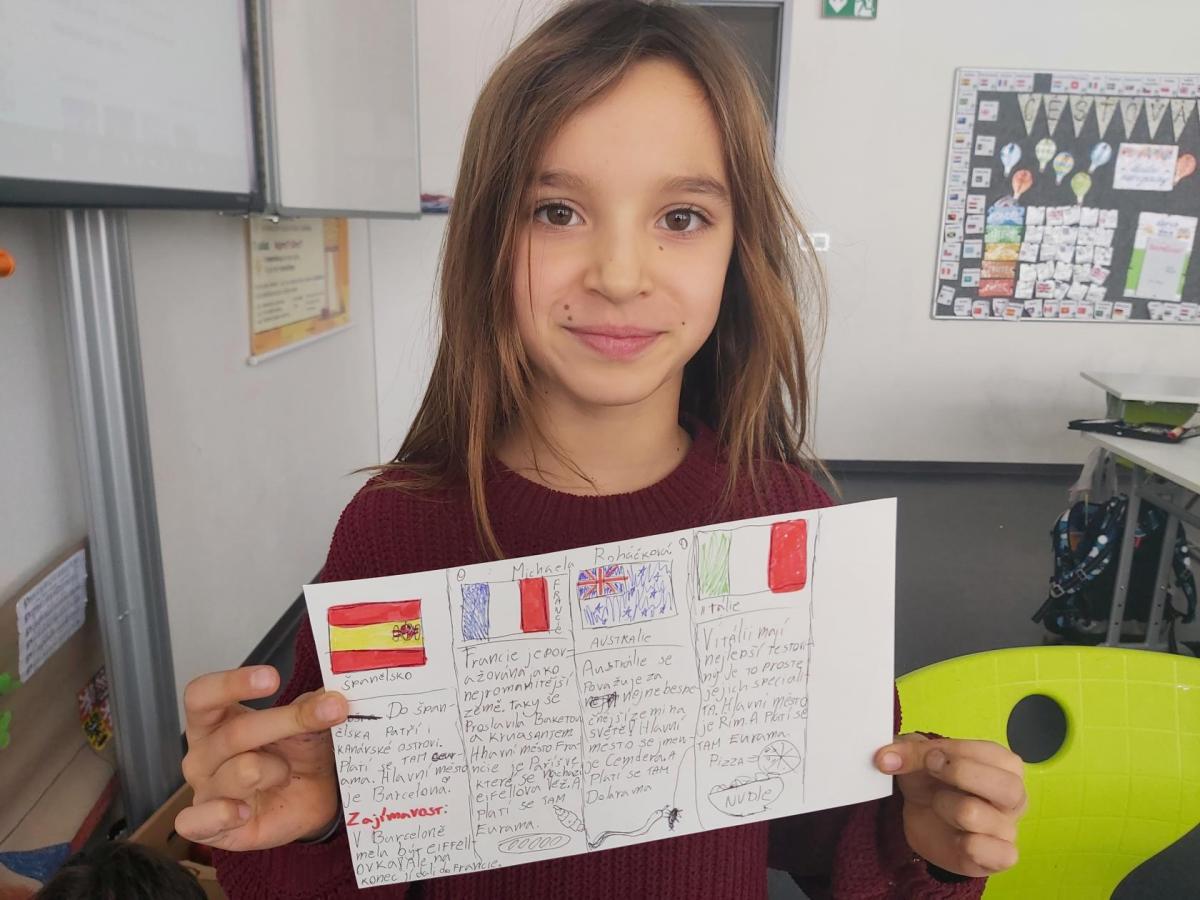 CESTOVÁ
Michaela Roháčková
ŠPANĚLSKO
Do Špan-
ělska PATŘÍ i
kanárské ostrovi.
Platí se TAM
ama. Hlavní město
je Barcelona.
Zajímavost:
V Barceloně
mela být EIFFELL
OVKA ALE na
konec jí dali do Francie.
FRANCIE
Francie je pov-
ažována ako
nejromantější
země. taky se
Proslavila Baketou
a kruasanjem
Hhavní město Fran
cie je Paříž ve
které se nachází
eiFellova věž. A
platí se TAM
Eurama.
AUSTRÁLIE
Austrálie se
Považuje za
nejnebespe
čnější zemi na
světě. Hlavní
město se jmen-
je Cemdera. A
Platí se TAM
Dolarama
itálie
V itálii mají
nejlepší testovi-
ny je to prostě
jejich speciali
TA. Hlavní město
je Řím. A Platí se
TAM Eurama.
Pizza=
NUDLE